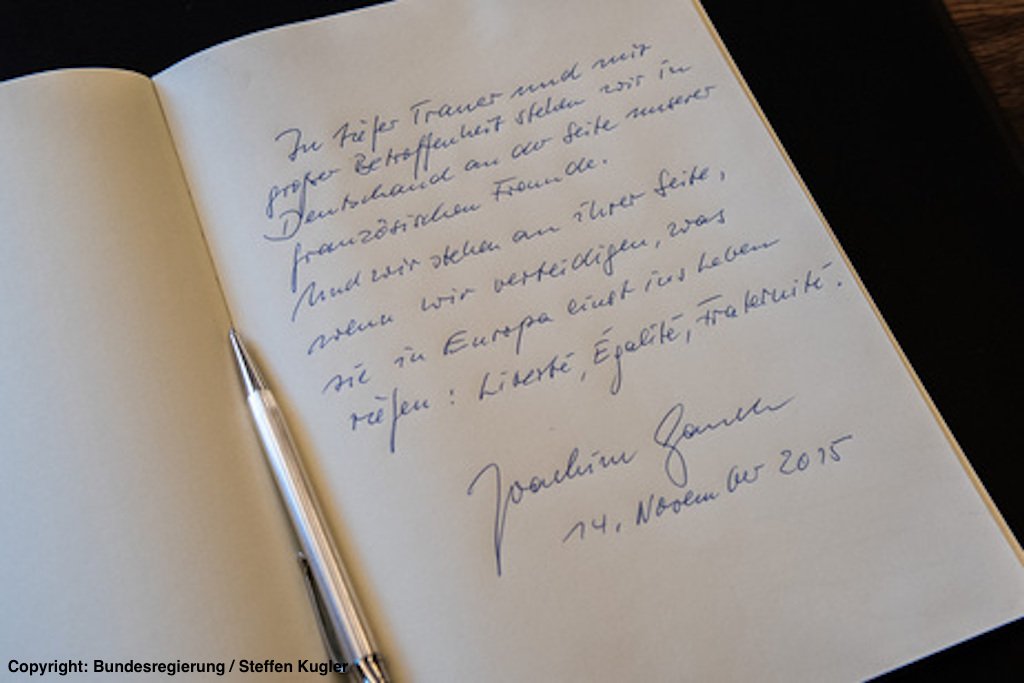 In tiefer Trauer und mit
großer Betroffenheit stehen wir in
Deutschand an der Seite unserer
französischen Freunde.
Und wir stehen an ihrer Seite,
wenn wir verteidigen, was
sie in Europa einst ins Leben
riefen: Liberté, Égalité, Fraternité.
Joachim Gauck
14. November 2015
Copyright: Bundesregierung / Steffen Kugler